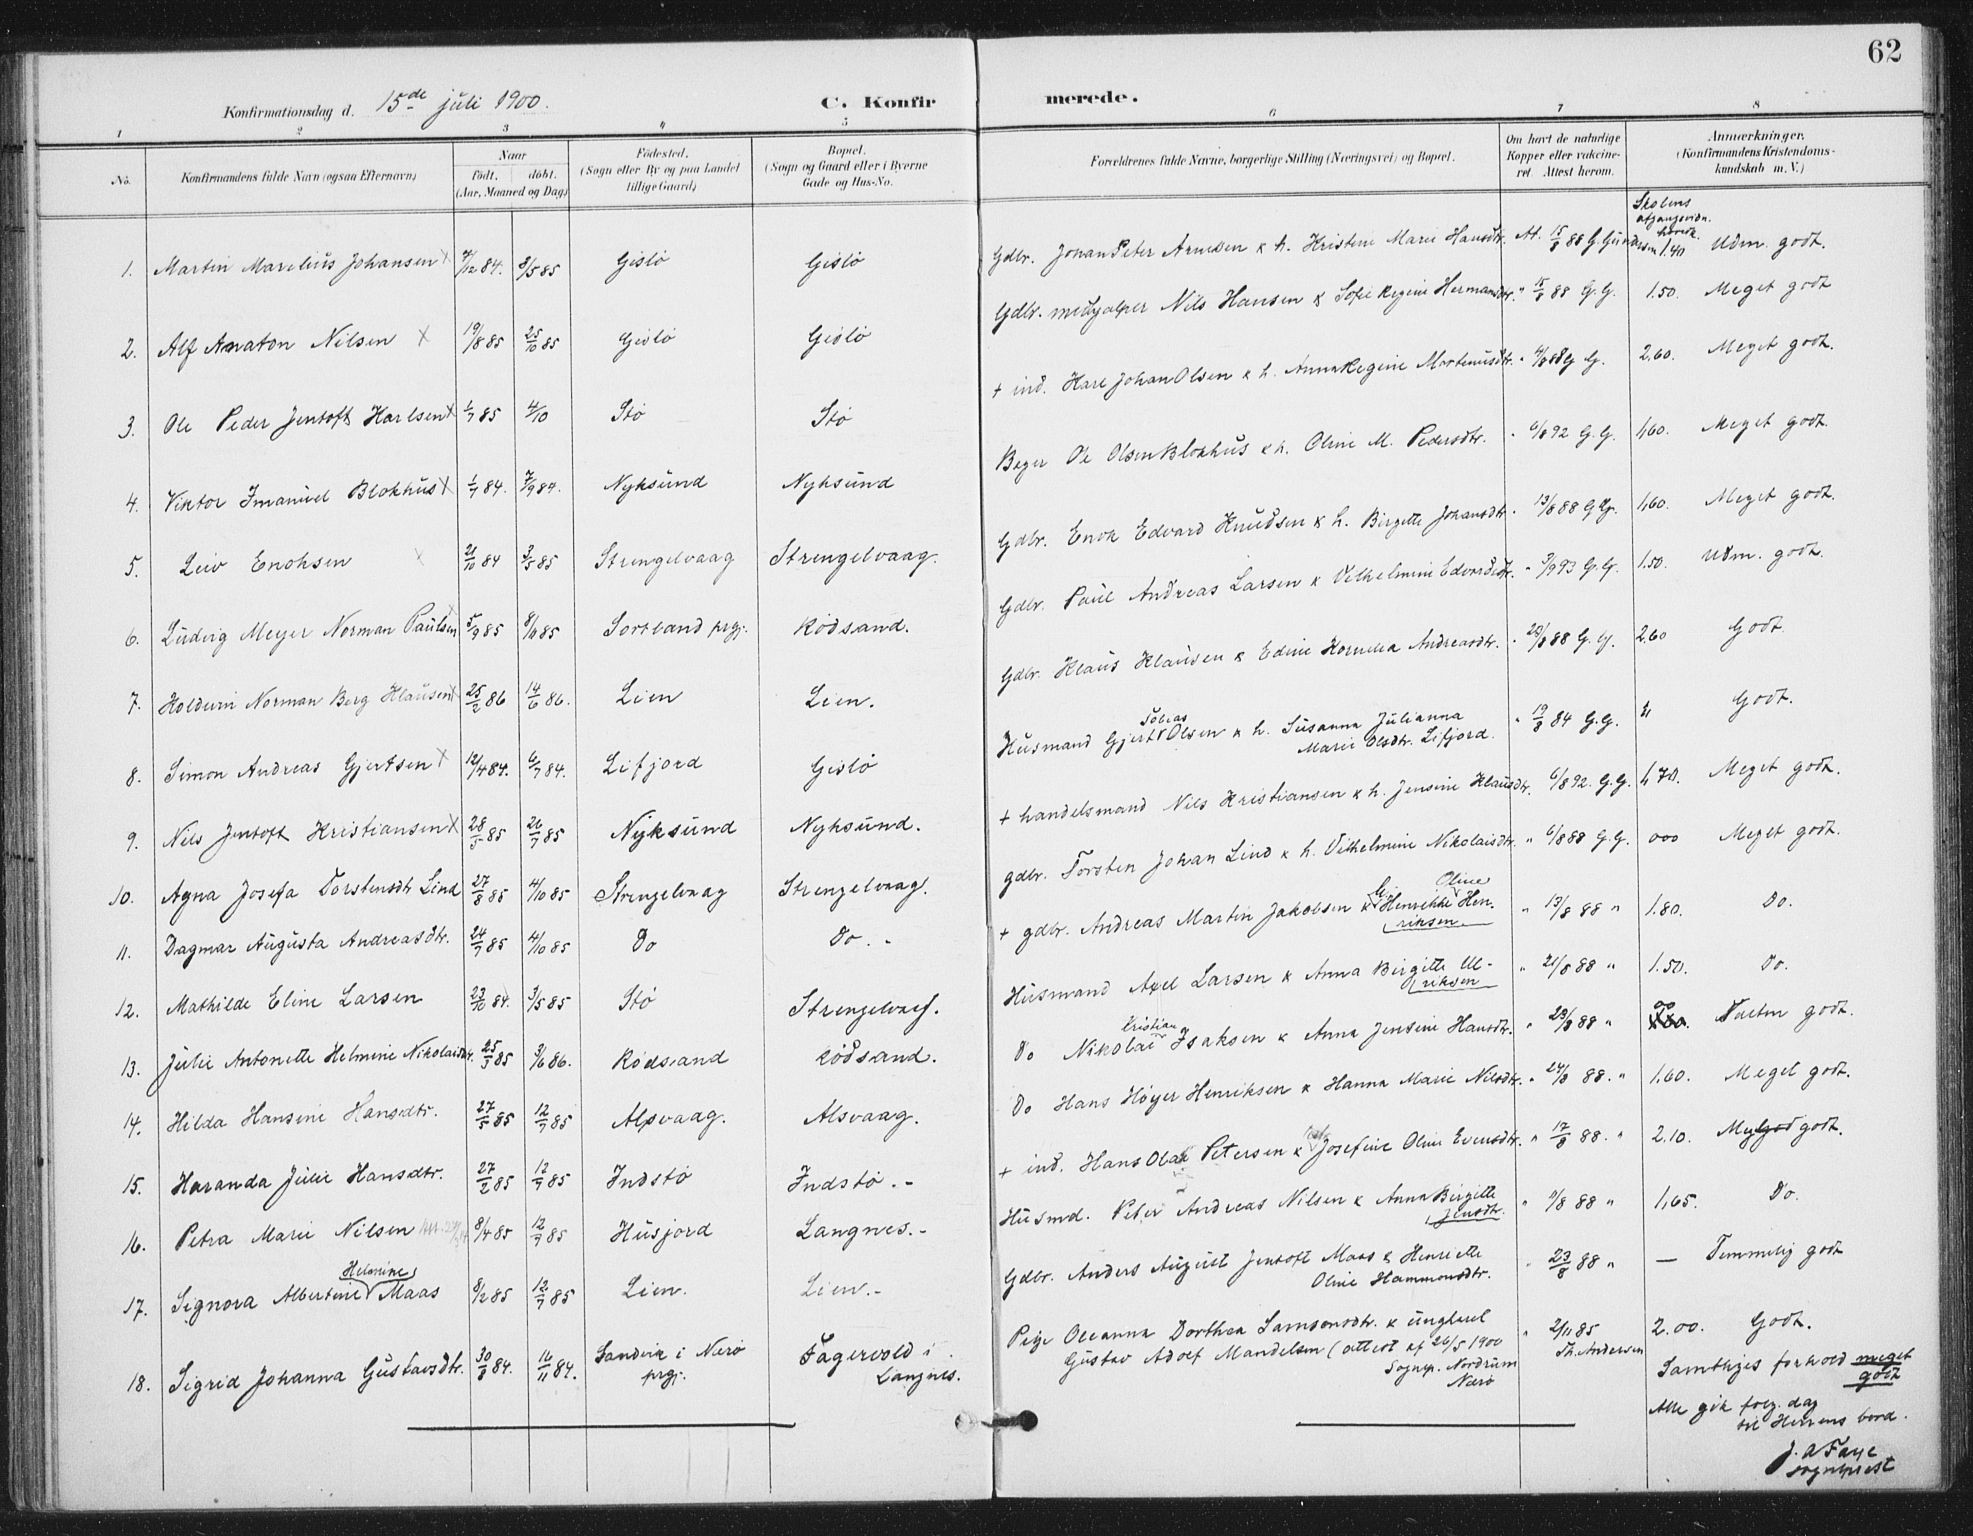 62
Konfirmationsdag d. 15de juli 1900.
C. Konfirmerede.
1 2 3 4 5 6 7 8
No. Konfirmandens fulde Navn (ogsaa Efternavn)
Naar født. døbt. (Aar, Maaned og Dag)
Födested. (Sogn eller By og paa Landet tillige Gaard)
Bopæl. (Sogn og Gaard eller i Byerne Gade og Hus-No.
Forældrenes fulde Navne, borgerlige Stilling (Næringsvei) og Bopæl.
Om havt de naturlige Kopper eller vakcineret. Attest herom.
Anmærkninger. (Konfirmandens Kristendomskundskab m. V.)
Skolens afgangsvidn. karak.
1. Martin Marelius Johansen x 7/12 84. 8/5 85 Gislø Gislø Gdbr. Johan Peter Arntsen & h. Kristine Marie Hansdtr. At. 15/8 88 G. Gundersen 1.40 Udm. godt.
2. Alf Anaton Nilsen x 19/8 85 25/10 85 Gislø Gislø Gdbr. medhjælper Nils Hansen & Sofie Regine Hermansdtr. " 15/8 88 G. G. 1.50. Meget godt
3. Ole Peder Jentoft Harlsen x 1/7 85 4/10 Stø Stø + ind. Hare Johan Olsen & h. Anna Regine Mortenusdtr. G. G. 2.60. Meget godt.
4. Viktor Imanuel Blokhus x 1/7 84. 7/9 84. Nyksund Nyksund Ole Olsen Blokhus & h. Oline M. Pedersdtr. " 6/8 92 G. G. 1,60. Meget godt.
5. Leiv Enoksen x 21/10 84 3/5 85 Strengelvaag Strengelvaag. Gdbr. Enok Edvard Knudsen & h. Birgitte Johansdtr. " 13/8 88 G. G. 1,60. Meget godt.
6. Ludvig Meyer Norman Paulsen x 5/9 85 8/11 85 Sortland prgj. Rødsand. Gdbr. Paul Andreas Larsen & Vilhelmine Edvardsdtr. " 3/9 93 G. G. 1.50. Udm. godt.
7. Holdum Norman Berg Klausen x 25/2 86 14/6 86. Lien Lien. Gdbr. Klaus Klausen & Edine Kornelia Andreasdtr. " 23/8 88 G. G. 2.60 Godt.
8. Simon Andreas Gjertsen x 12/4 84. 6/7 84. Lifjord Gislø Husmand Gjert Tobias Olsen & h. Susanna Julianna Marie Olsdtr. Lifjord. " 19/8 84 G. G. " Godt.
9. Nils Jentoft Kristiansen x 28/5 85 26/7 85 Nyksund Nyksund. + handelsmand Nils Kristiansen & h. Jensine Klausdtr. 6/8 92. G. G. 1,70. Meget godt.
10. Agna Josefa Torstensdtr Lind 27/8 85 4/10 85 Strengelvaag Strengelvaag. gdbr. Torsten Johan Lind & h. Vilhelmine Nikolaisdtr. " 6/8 88 G. G. 000 Meget godt.
11. Dagmar Augusta Andreasdtr. 24/7 85 4/10 85 Do Do. - + gdbr. Andreas Martin Jakobsen & h. Henrikke Oline Henriksen " 13/8 88 " 1.80. Do.
12. Mathilde Eline Larsen 23/10 84. 3/5 85 Stø Strengelvaag. Husmand Axel Larsen & Anna Birgitte Ulriksen " 21/8 88 " 1.50. Do.
13. Julie Antonette Helmine Nikolaisdtr. 25/5 85 3/6 86. Rødsand Rødsand. Do Nikolai Kristian Isaksen & Anna Jensine Hansdtr. " 23/8 88 " 00 Næsten godt.
14. Hilda Hansine Hansdtr. 27/5 85 12/7 85 Alsvaag. Alsvaag. Do Hans Høyer Henriksen & Hanna Marie Nilsdtr. " 24/8 88. " 1.60. Meget godt.
15. Haranda Julie Hansdtr. 27/2 85 12/7 85 Indstø Indstø. - + ind. Hans Olai Petersen & Josefine Oline Evensdtr. " 17/8 88. " 2.10. Meget godt.
16. Petra Marie Nilsen 8/4 85 12/7 85 Husjord Langnes. - Husmd. Peter Andreas Nilsen & Anna Birgitte Jensdtr. 88 " 1,65. Do.
17. Signora Albertine Helmine Maas 8/2 85 12/7 85 Lien. Lien. - Gdbr. Anders August Jentoft Maas & Henriette Oline Hammonsdtr. " 23/8 88 " — Temmelig godt
18. Sigrid Johanna Gustavsdtr. 30/8 84. 16/11 84. Sandvik i Nærø prgj. Fagervold i Langnes. Pige Oleanna Dorthea Samsonsdtr. & ungkarl Gustav Adolf Mandelsen (attest af 26/5 1900 Sognep. Nordrum Nærø " 2/11 85 Th. Andersen 2.00. Godt.
Samtliges forhold meget godt
Alle gik følg. dag til Herrens bord.
J. A Faye
sogneprest